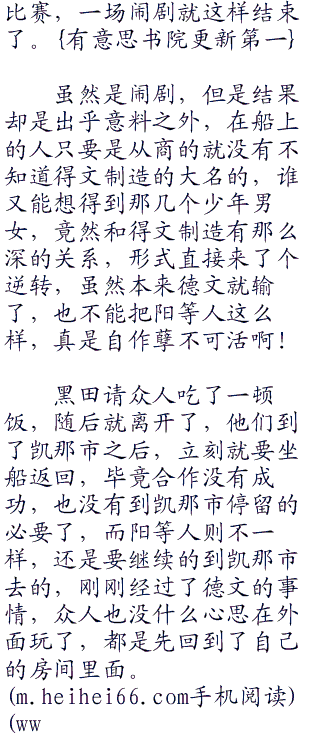 比赛，一场闹剧就这样结束
了。{有意思书院更新第一}
虽然是闹剧，但是结果
却是出乎意料之外，在船上
的人只要是从商的就没有不
知道得文制造的大名的，谁
又能想得到那几个少年男
女，竟然和得文制造有那么
深的关系，形式直接来了个
逆转，虽然本来德文就输
了，也不能把阳等人这么
样，真是自作孽不可活啊！
黑田请众人吃了一顿
饭，随后就离开了，他们到
了凯那市之后，立刻就要坐
船返回，毕竟合作没有成
功，也没有到凯那市停留的
必要了，而阳等人则不一
样，还是要继续的到凯那市
去的，刚刚经过了德文的事
情，众人也没什么心思在外
面玩了，都是先回到了自己
的房间里面。
(m.heihei66.com手机阅读)
(ww